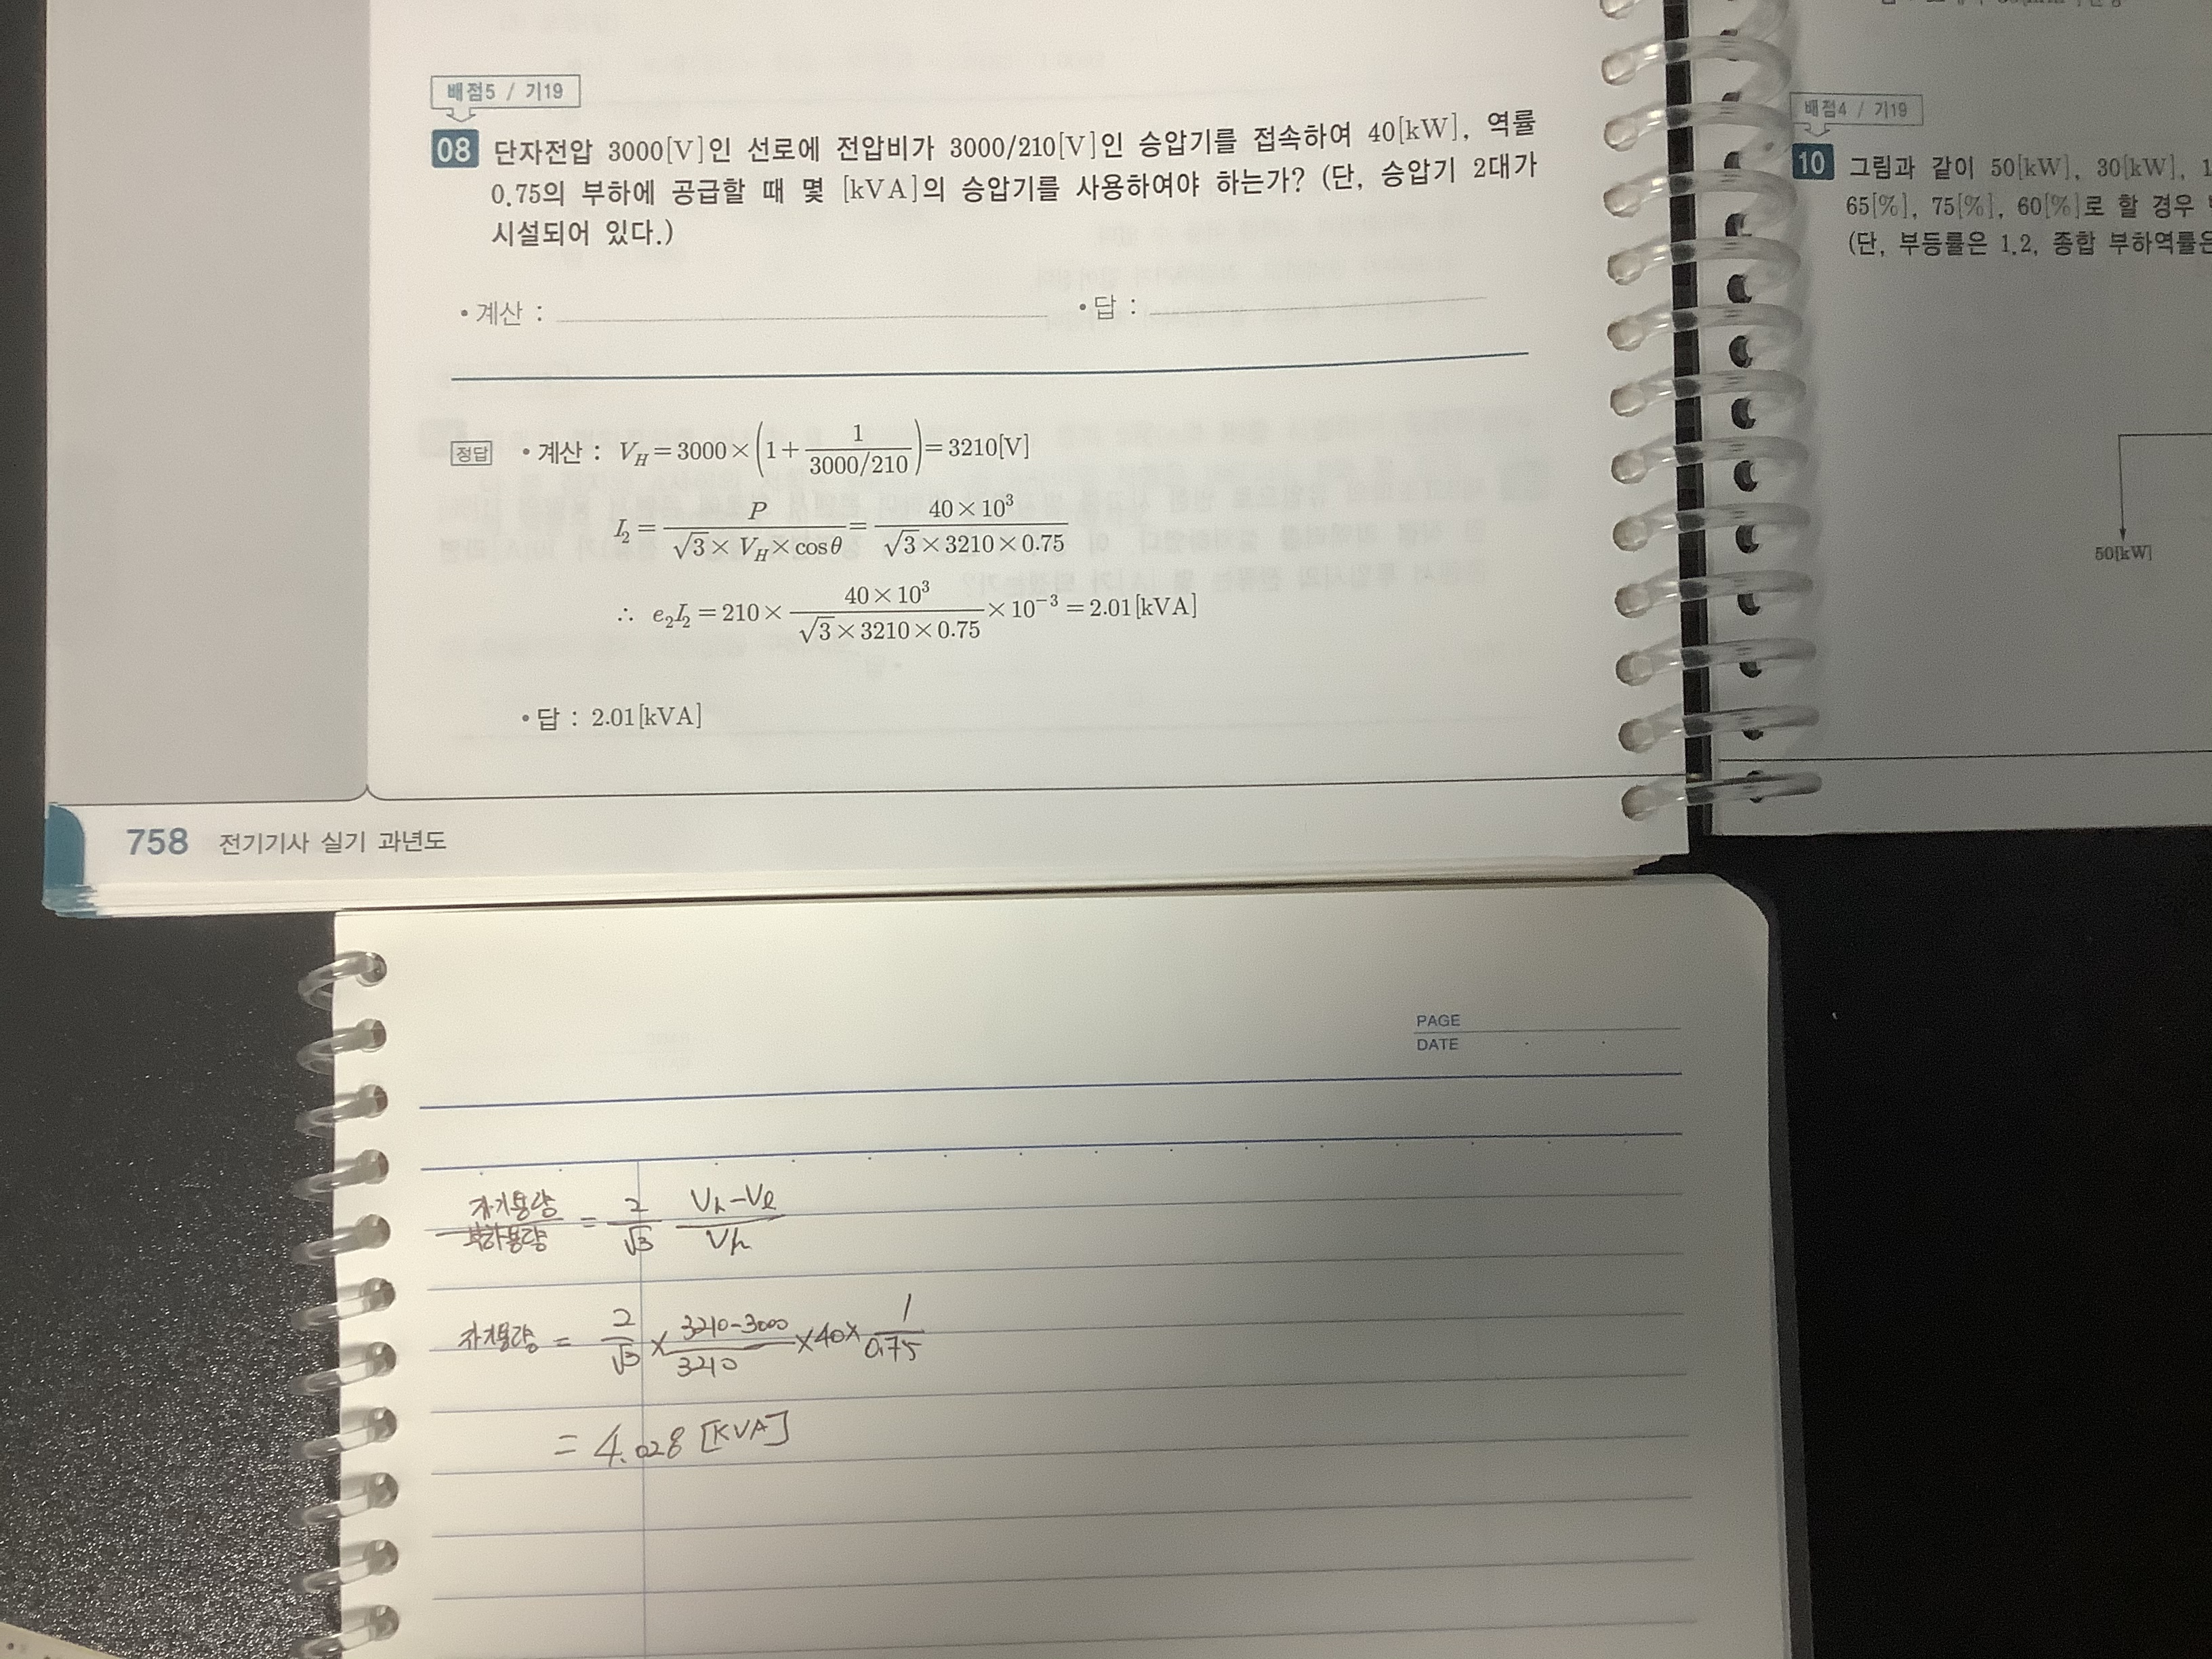 배점5 / 기19
08 단자전압 3000[V]인 선로에 전압비가 3000/210[V]인 승압기를 접속하여 40[kW], 역률
0.75의 부하에 공급할 때 몇 [kVA]의 승압기를 사용하여야 하는가? (단, 승압기 2대가
시설되어 있다.)
• 계산 :
• 답 :
정답 • 계산 : V_H = 3000 × (1 + 1/(3000/210)) = 3210[V]
I₂ = P/(√3 × V_H × cosθ) = 40×10³/(√3×3210×0.75)
∴ e₂I₂ = 210 × 40×10³/(√3×3210×0.75) × 10⁻³ = 2.01[kVA]
• 답 : 2.01[kVA]
758 전기기사 실기 과년도
배점4 / 기19
10 그림과 같이 50[kW], 30[kW],
65[%], 75[%], 60[%]로 할 경우
(단, 부등률은 1.2, 종합 부하역률은
50[kW]
PAGE
DATE
자기용량/부하용량 = 2/√3 (Vh-Vℓ)/Vh
자기용량 = 2/√3 × (3210-3000)/3210 × 40 × 1/0.75
= 4.028 [KVA]